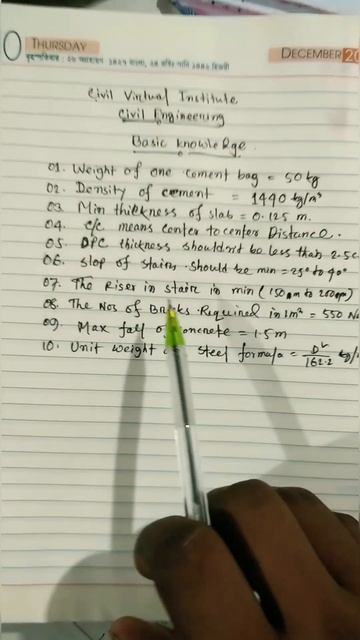 THURSDAY
DECEMBER 20
Civil Virtual Institute
Civil Engineering
Basic knowledge.
01. Weight of one cement bag = 50 kg
02. Density of cement = 1440 kg/m³
03. Min thickness of slab = 0.125 m.
04. c/c means center to center Distance.
05. DPC thickness shouldn't be less than 2.5c
06. Slop of stairs should be min = 25° to 40°
07. The Riser in stair in min (150mm to 200mm)
08. The Nos of Bricks Required in 1m³ = 550 No
09. Max fall of concrete = 1.5m
10. Unit Weight steel formula = D²/162.2 kg/